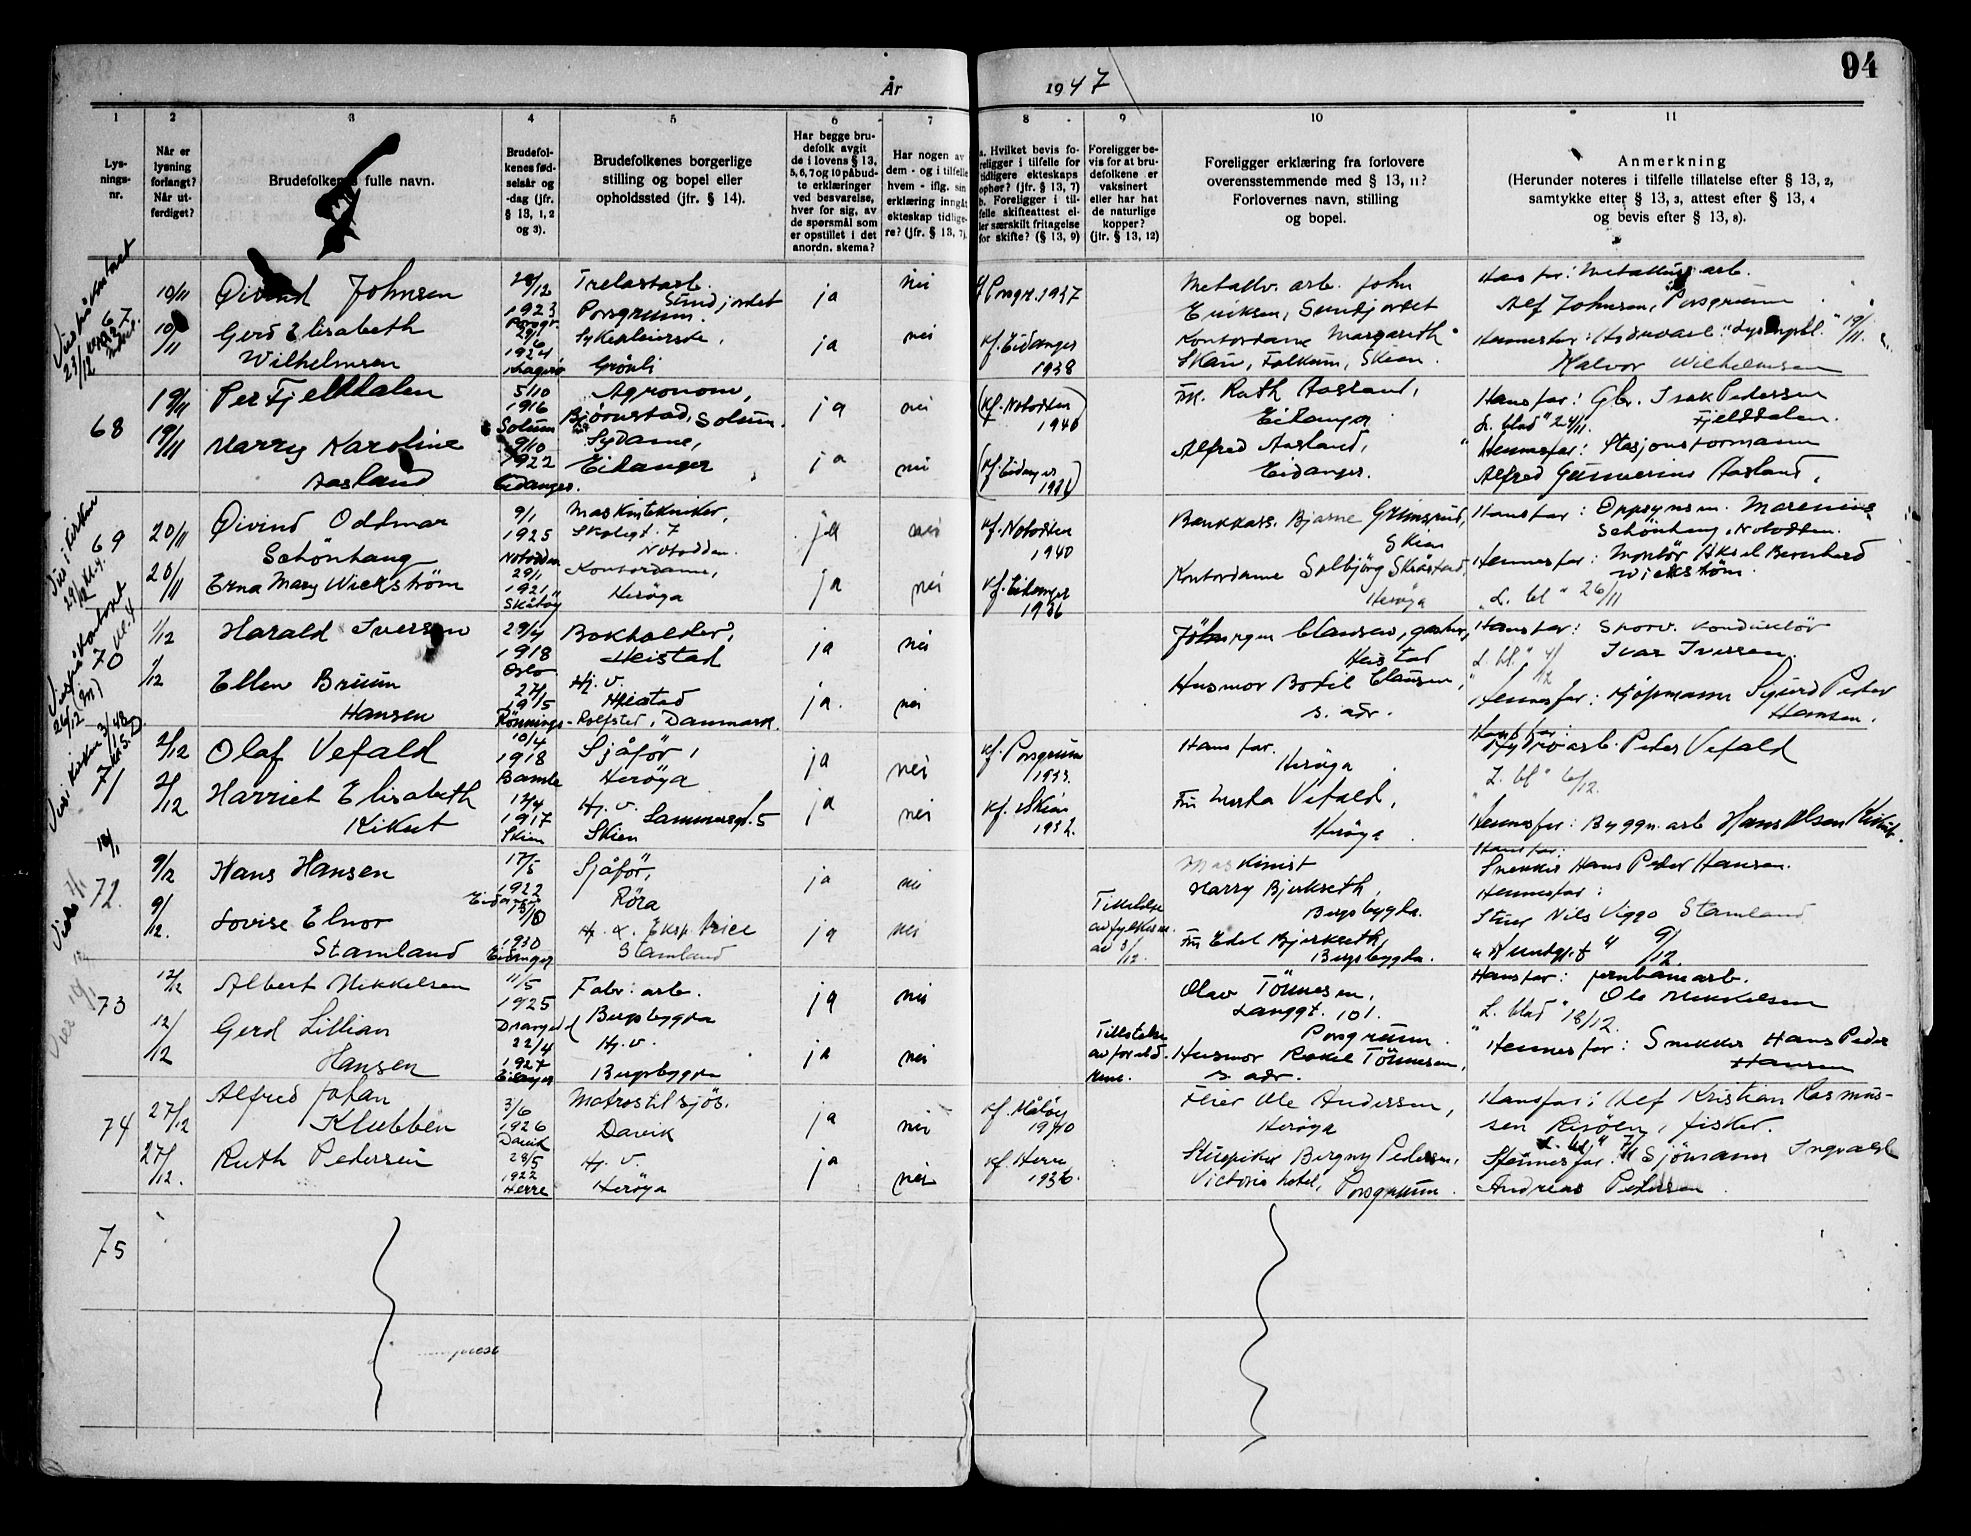 År 1947
94
1
Lys-
nings-
nr.
2
Når er
lysning
forlangt?
Når ut-
ferdiget?
3
Brudefolkenes fulle navn.
4
Brudefol-
kenes fød-
selsår og
-dag (jfr.
§ 13, 1, 2
og 3).
5
Brudefolkenes borgerlige
stilling og bopel eller
opholdssted (jfr. § 14).
6
Har begge bru-
defolk avgit
de i lovens § 13,
5, 6, 7 og 10 påbud-
te erklæringer
ved besvarelse,
hver for sig, av
de spørsmål som
er opstillet i det
anordn. skema?
7
Har nogen av
dem - og i tilfelle
hvem - iflg. sin
erklæring inngåt
ekteskap tidlige-
re? (jfr. § 13, 7).
8
a. Hvilket bevis fo-
religger i tilfelle for
tidligere ekteskaps
ophør? (jfr. § 13, 7)
b. Foreligger i til-
felle skifteattest el-
ler særskilt fritagelse
for skifte? (§ 13, 9)
9
Foreligger be-
vis for at bru-
defolkene er
vaksinert
eller har hat
de naturlige
kopper?
(jfr. § 13, 12)
10
Foreligger erklæring fra forlovere
overensstemmende med § 13, 11?
Forlovernes navn, stilling
og bopel.
11
Anmerkning
(Herunder noteres i tilfelle tillatelse efter § 13, 2,
samtykke efter § 13, 3, attest efter § 13, 4
og bevis efter § 13, 8).
67
10/11
Øivind Johnsen
28/12
1923
Porsgr.
Trelastarb.
Sundjordet
Porsgrunn.
ja
nei
Porsgr. 1937
Metallv. arb. John
Eriksen, Sundjordet
Hans far: Metallverksarb.
Alf Johnsen, Porsgrunn
10/11
Gerd Elisabeth
Wilhelmsen
29/6
1924
Sykepleierske,
Grönli
ja
nei
Kf. Eidanger
1938
Kontordame Margareth
Skau, Falkum, Skien.
Halvor Wilhelmsen
68
19/11
Per Fjelldalen
5/10
1916
Solum
Agronom,
Bjørnstad, Solum.
ja
nei
(Kf. Notodden
1940
Frk. Ruth Aasland,
Eidanger
Hans far: Gbr. Isak Pedersen
Fjelldalen.
L. blad" 24/11.
19/11
Marry Karoline
Aasland
9/10
1922
Eidanger.
Sydame,
Eidanger
ja
nei
(Kf. Eidanger
Alfred Aasland,
Eidanger.
Hennes far: Stasjonsformann
Alfred Gunnerius Aasland.
69
20/11
Øivind Oddmar
Schönhaug
9/1
1925
Notodden
Maskintekniker,
Skolegt. 7
Notodden.
ja
nei
Kf. Notodden
1940
Bankkass. Bjarne Grimsrud,
Skien
Hans far: Oppsynsm. Marenius
Schönhaug, Notodden.
20/11
Erna Mary Wickström
29/1
1921
Skåtøy
Kontordame,
Herøya
ja
nei
Kf. Eidanger
1936
Kontordame Solbjörg Skråstad,
Herøya
Hennes far: Montör Aksel Bernhard
Wickström.
"L. bl" 26/11
70
1/12
Harald Iversen
29/4
1918
Oslo
Bokholder,
Heistad
ja
nei
Jörgen Clausen, gartner,
Heistad
Hans far: Sporv. konduktör
Ivar Iversen.
L. bl." 4/12
1/12
Ellen Bruun
Hansen
27/5
1915
Hj. v.
Heistad
Rönnings-Rolfsted, Danmark.
ja.
nei
Husmor Bodil Clausen,
s. adr.
Hennes far: Kjöpmann Sigurd Peder
Hansen.
71
2/12
Olaf Vefald
10/4
1918
Bamble
Sjåför,
Herøya
ja
nei
Kf. Porsgrunn
1933.
Hans far.
Herøya
Hans far:
Hydroarb. Peder Vefald
L. bl" 6/12.
2/12
Harriet Elisabeth
Kikut
12/4
1917
Skien
Hj. v. Lammersgt. 5
Skien
ja
nei
Kf. Skien
1932.
Fru Marta Vefald,
Herøya
Hennes far: Byggn. arb Hans Olsen Kikut.
72.
9/12
Hans Hansen
17/5
1922
Eidanger
Sjåför,
Röra
ja
nei
Maskinist
Harry Bjerkseth,
Bergsbygda.
Hans far:
Snekker Hans Peder Hansen.
9/12.
Lovise Elnor
Stamland
1930
Eidanger
Stamland
ja
nei
av 3/12.
Fru Edel Bjerkseth,
Bergsbygda.
Hennes far:
Stuer Nils Viggo Stamland
9/12.
73
12/12
Albert Mikkelsen
11/5
1925
Drangedal
Fabr: arb.
Bergsbygda
ja
nei
Olav Tönnesen,
Langgt. 101.
Porsgrunn.
Hans far: jernbanearb.
Ole Mikkelsen
L. blad" 18/12.
12/12
Gerd Lillian
Hansen
22/4
1927
Eidanger
Hj. v.
Bergsbygda
ja
nei
Tillatelse
av foreld-
rene.
Husmor Rakel Tönnesen,
s. adr.
Hennes far: Snekker Hans Peder
Hansen
74
27/12
Alfred Johan
Klubben
3/6
1926
Davik
Matros til sjös.
Davik
ja
nei
Kf. Måløy
1940
Feier Ole Andersen,
Herøya
Hans far: Alf Kristian Rasmus-
sen Risöen, fisker.
27/12.
Ruth Pedersen
28/5
1922
Herre
Hj. v.
Herøya
ja
nei
Kf. Herre
1936.
Stuepike Bergny Pedersen,
Victoria hotel, Porsgrunn.
Hennes far: Sjömann Ingvald
Andreas Pedersen
75